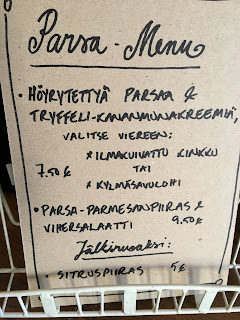 Parsa-Menu
• HÖYRYTETTYÄ PARSAA &
TRYFFELI-KANANMUNAKREEMIÄ,
VALITSE VIEREEN:
* ILMAKUIVATTU KINKKU
7.50 € TAI
* KYLMÄSAVULOHI
• PARSA-PARMESANPIIRAS &
VIHERSALAATTI 9.50€
Jälkiruoaksi:
• SITRUSPIIRAS 5€